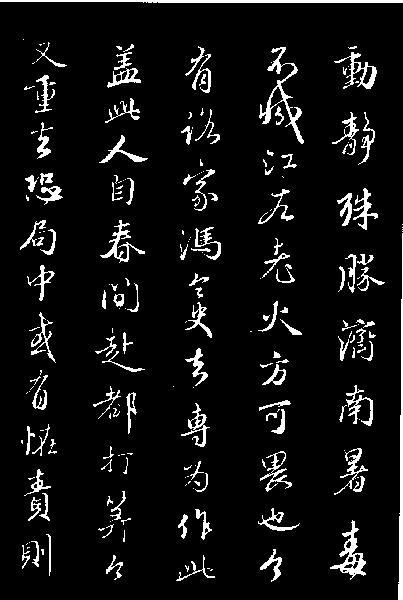 動靜殊勝濟南暑毒
不減江左老火方可畏也今
有家馮叟去專為作此
盖此人自春間赴都打算今
又重去恐局中或有恠責則